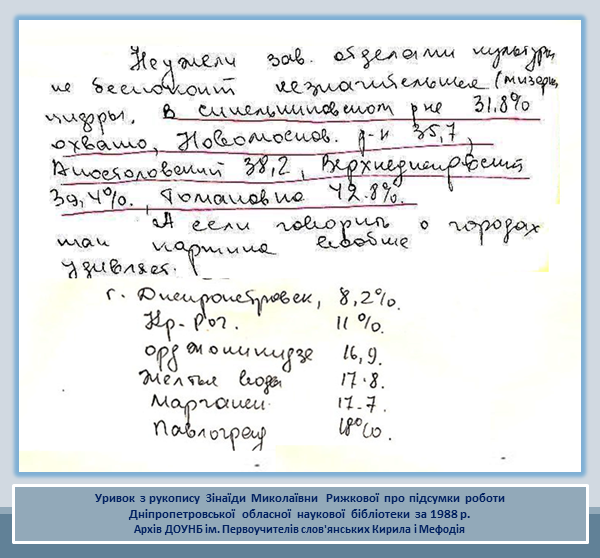 Неужели зав. отделами культуры
не беспокоит незначительные (мизерн
цифры. В синельниковском р-не 31.8%
охвата, Новомосков. р-н 35,7,
Апостоловский 38,2, Верхнеднепровский
39,4%., Томаковка 42.8%.
А если говорить о городах
там картина вообще
удивляет.
г. Днепропетровск, 8,2%.
Кр-Рог. 11%.
орджоникидзе 16,9.
Желтые воды 17.8.
Марганец. 17-7.
Павлоград 18%.
Уривок з рукопису Зінаїди Миколаївни Рижкової про підсумки роботи
Дніпропетровської обласної наукової бібліотеки за 1988 р.
Архів ДОУНБ ім. Первоучителів слов'янських Кирила і Мефодія